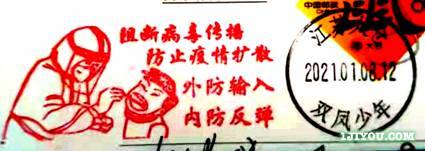 阻断病毒传播
防止疫情扩散
外防输入
内防反弹
中国邮政
江苏
2021.01.08.12
双凤少年
1JIYOU.COM